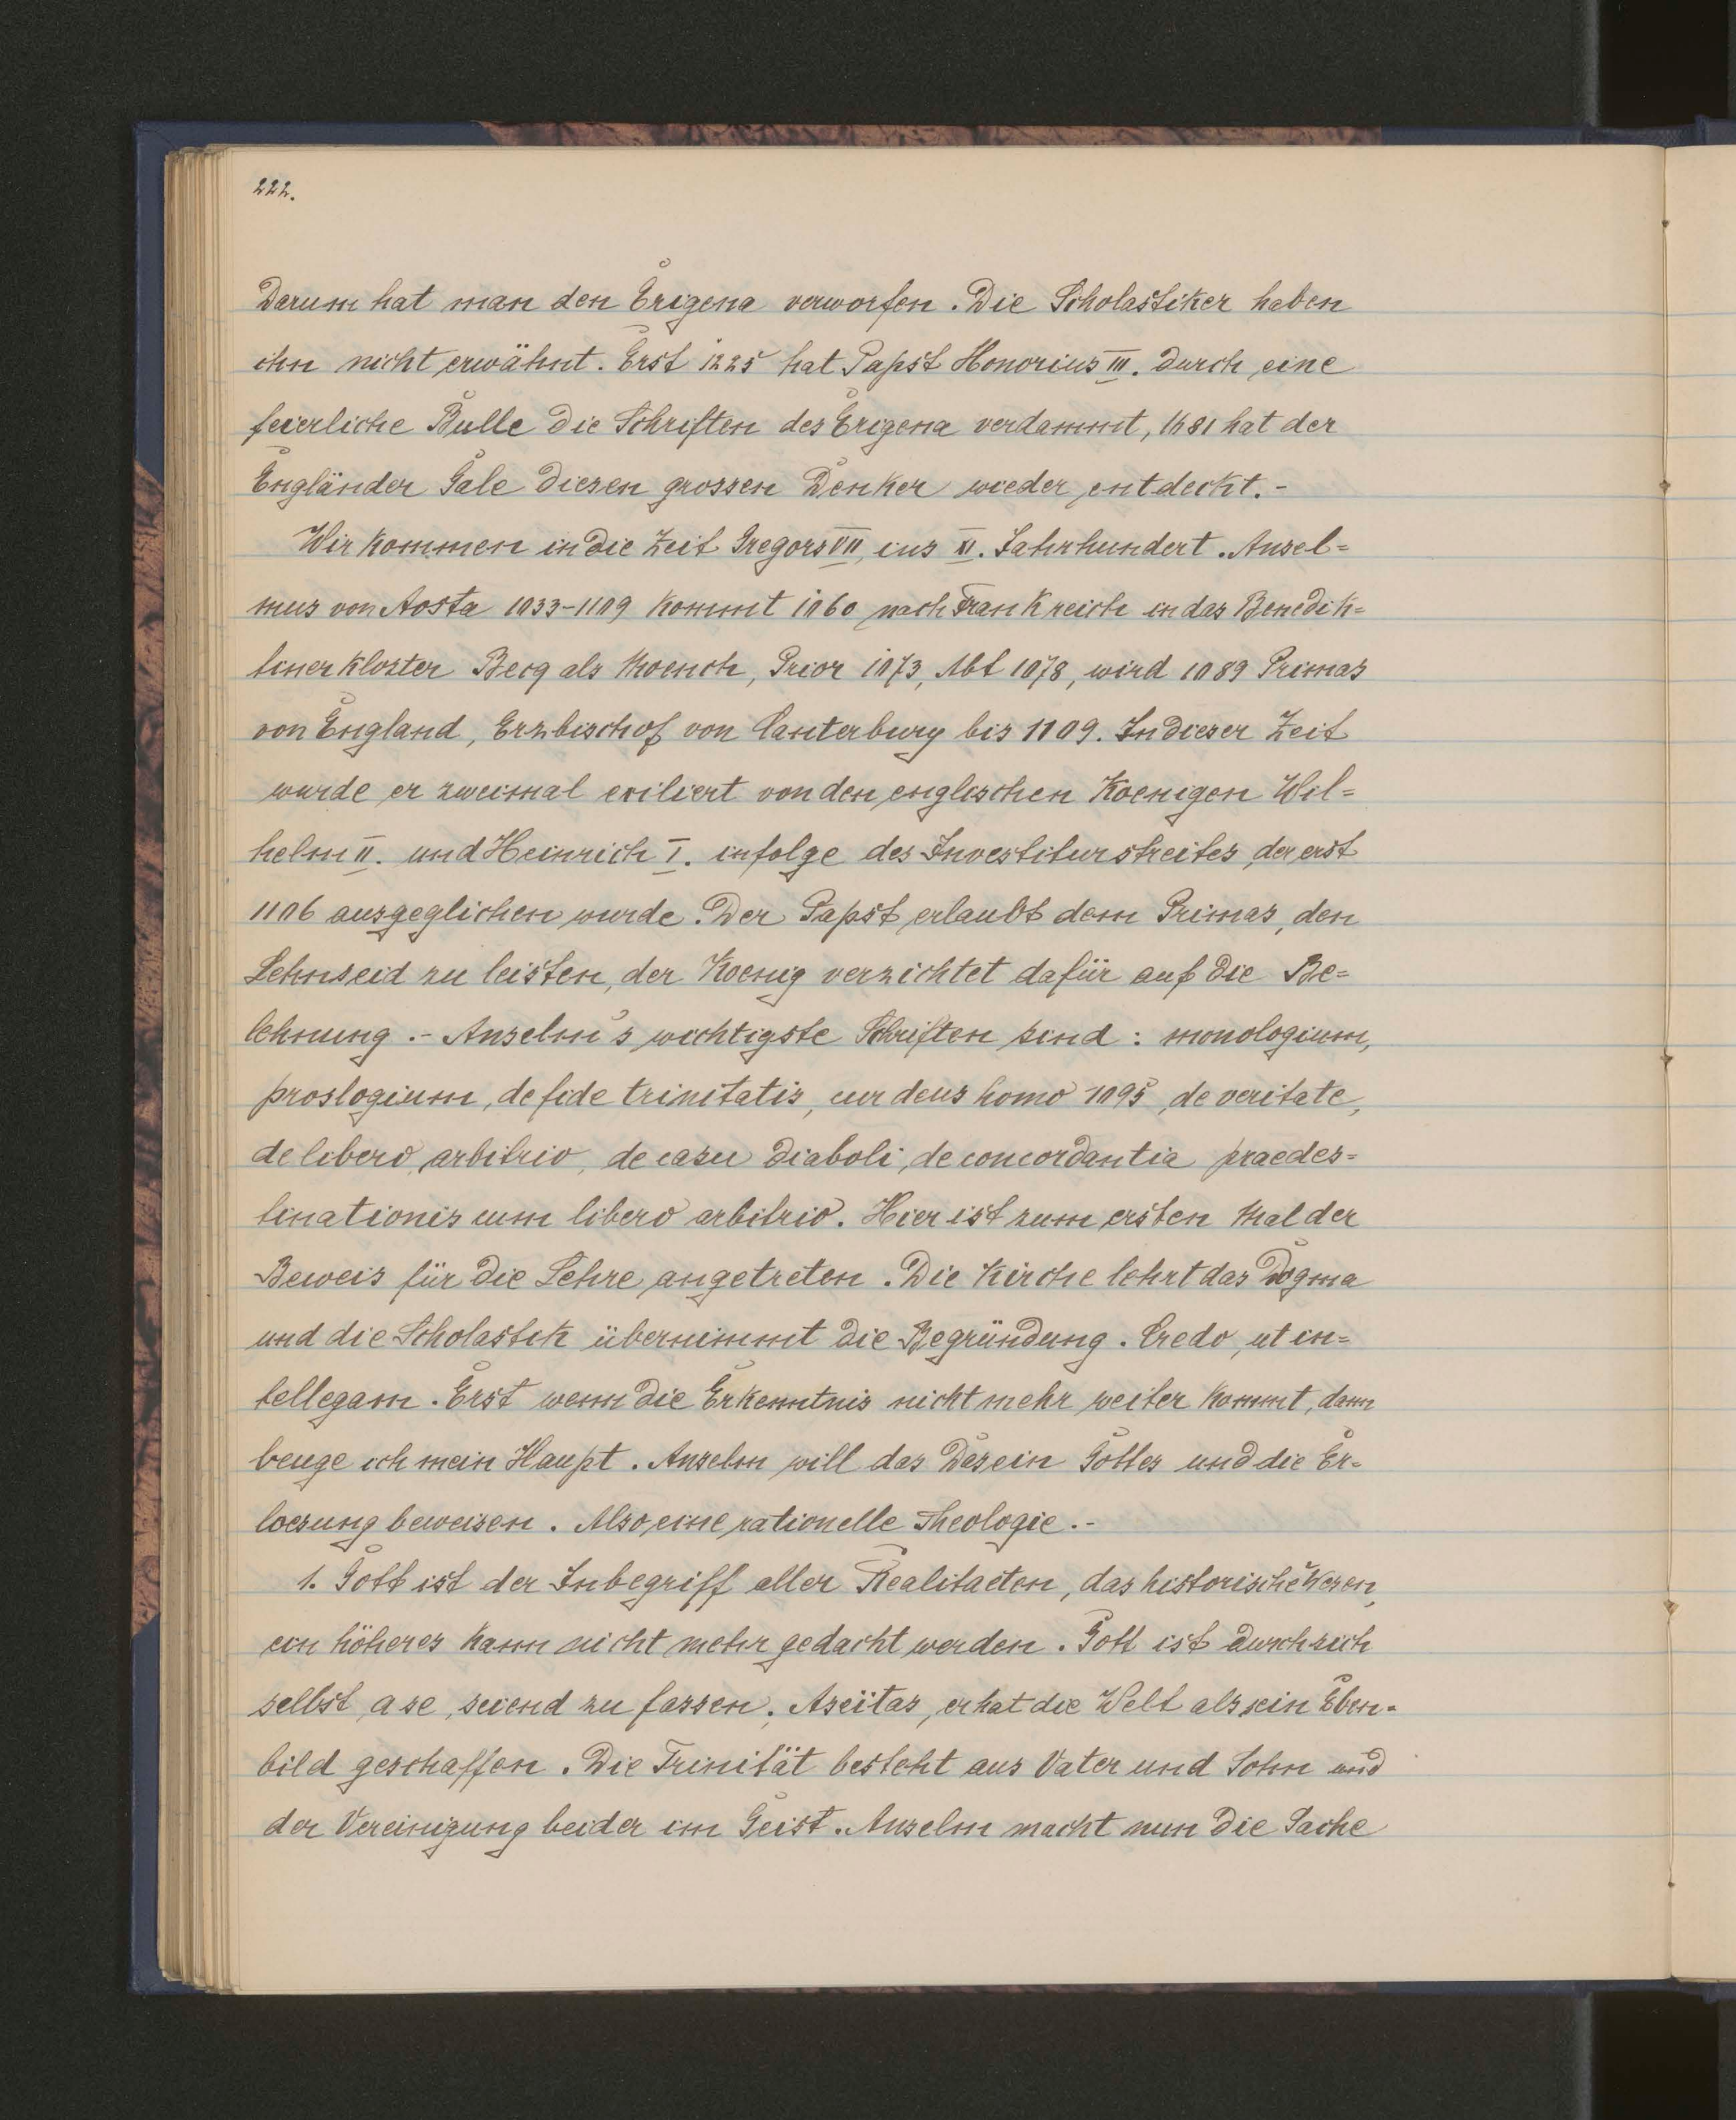 222.
Darum hat man den Erigena verworfen. Die Scholastiker haben
ihn nicht erwähnt. Erst 1225 hat Papst Honorius III. durch eine
feierliche Bulle die Schriften des Erigena verdammt, 1681 hat der
Engländer Gale diesen grossen Denker wieder entdeckt.-
Wir kommen in die Zeit Gregors VII, ins XI. Jahrhundert. Ansel=
mus von Aosta 1033-1109 kommt 1060 nach Frankreich in das Benedik=
tinerkloster Becq als Moench, Prior 1073, Abt 1078, wird 1089 Primas
von England, Erzbischof von Canterbury bis 1109. In dieser Zeit
wurde er zweimal exiliert von den englischen Koenigen Wil=
helm II. und Heinrich I. infolge des Investiturstreites, der erst
1106 ausgeglichen wurde. Der Papst erlaubt dem Primas, den
Lehnseid zu leisten, der Koenig verzichtet dafür auf die Be=
lehnung.- Anselm's wichtigste Schriften sind: monologium,
proslogium, de fide trinitatis, cur deus homo 1095, de veritate,
de libero arbitrio, de casu diaboli, de concordantia praedes=
tinationis cum libero arbitrio. Hier ist zum ersten Mal der
Beweis für die Lehre angetreten. Die Kirche lehrt das Dogma
und die Scholastik übernimmt die Begründung. Credo, ut in=
tellegam. Erst wenn die Erkenntnis nicht mehr weiter kommt, dann
beuge ich mein Haupt. Anselm will das Dasein Gottes und die Er=
loesung beweisen. Also eine rationelle Theologie.-
1. Gott ist der Inbegriff aller Realitaeten, das historische Wesen,
ein höheres kann nicht mehr gedacht werden. Gott ist durch sich
selbst, a se, seiend zu fassen. Aseïtas, er hat die Welt als sein Eben=
bild geschaffen. Die Trinität besteht aus Vater und Sohn und
der Vereinigung beider im Geist. Anselm macht nun die Sache